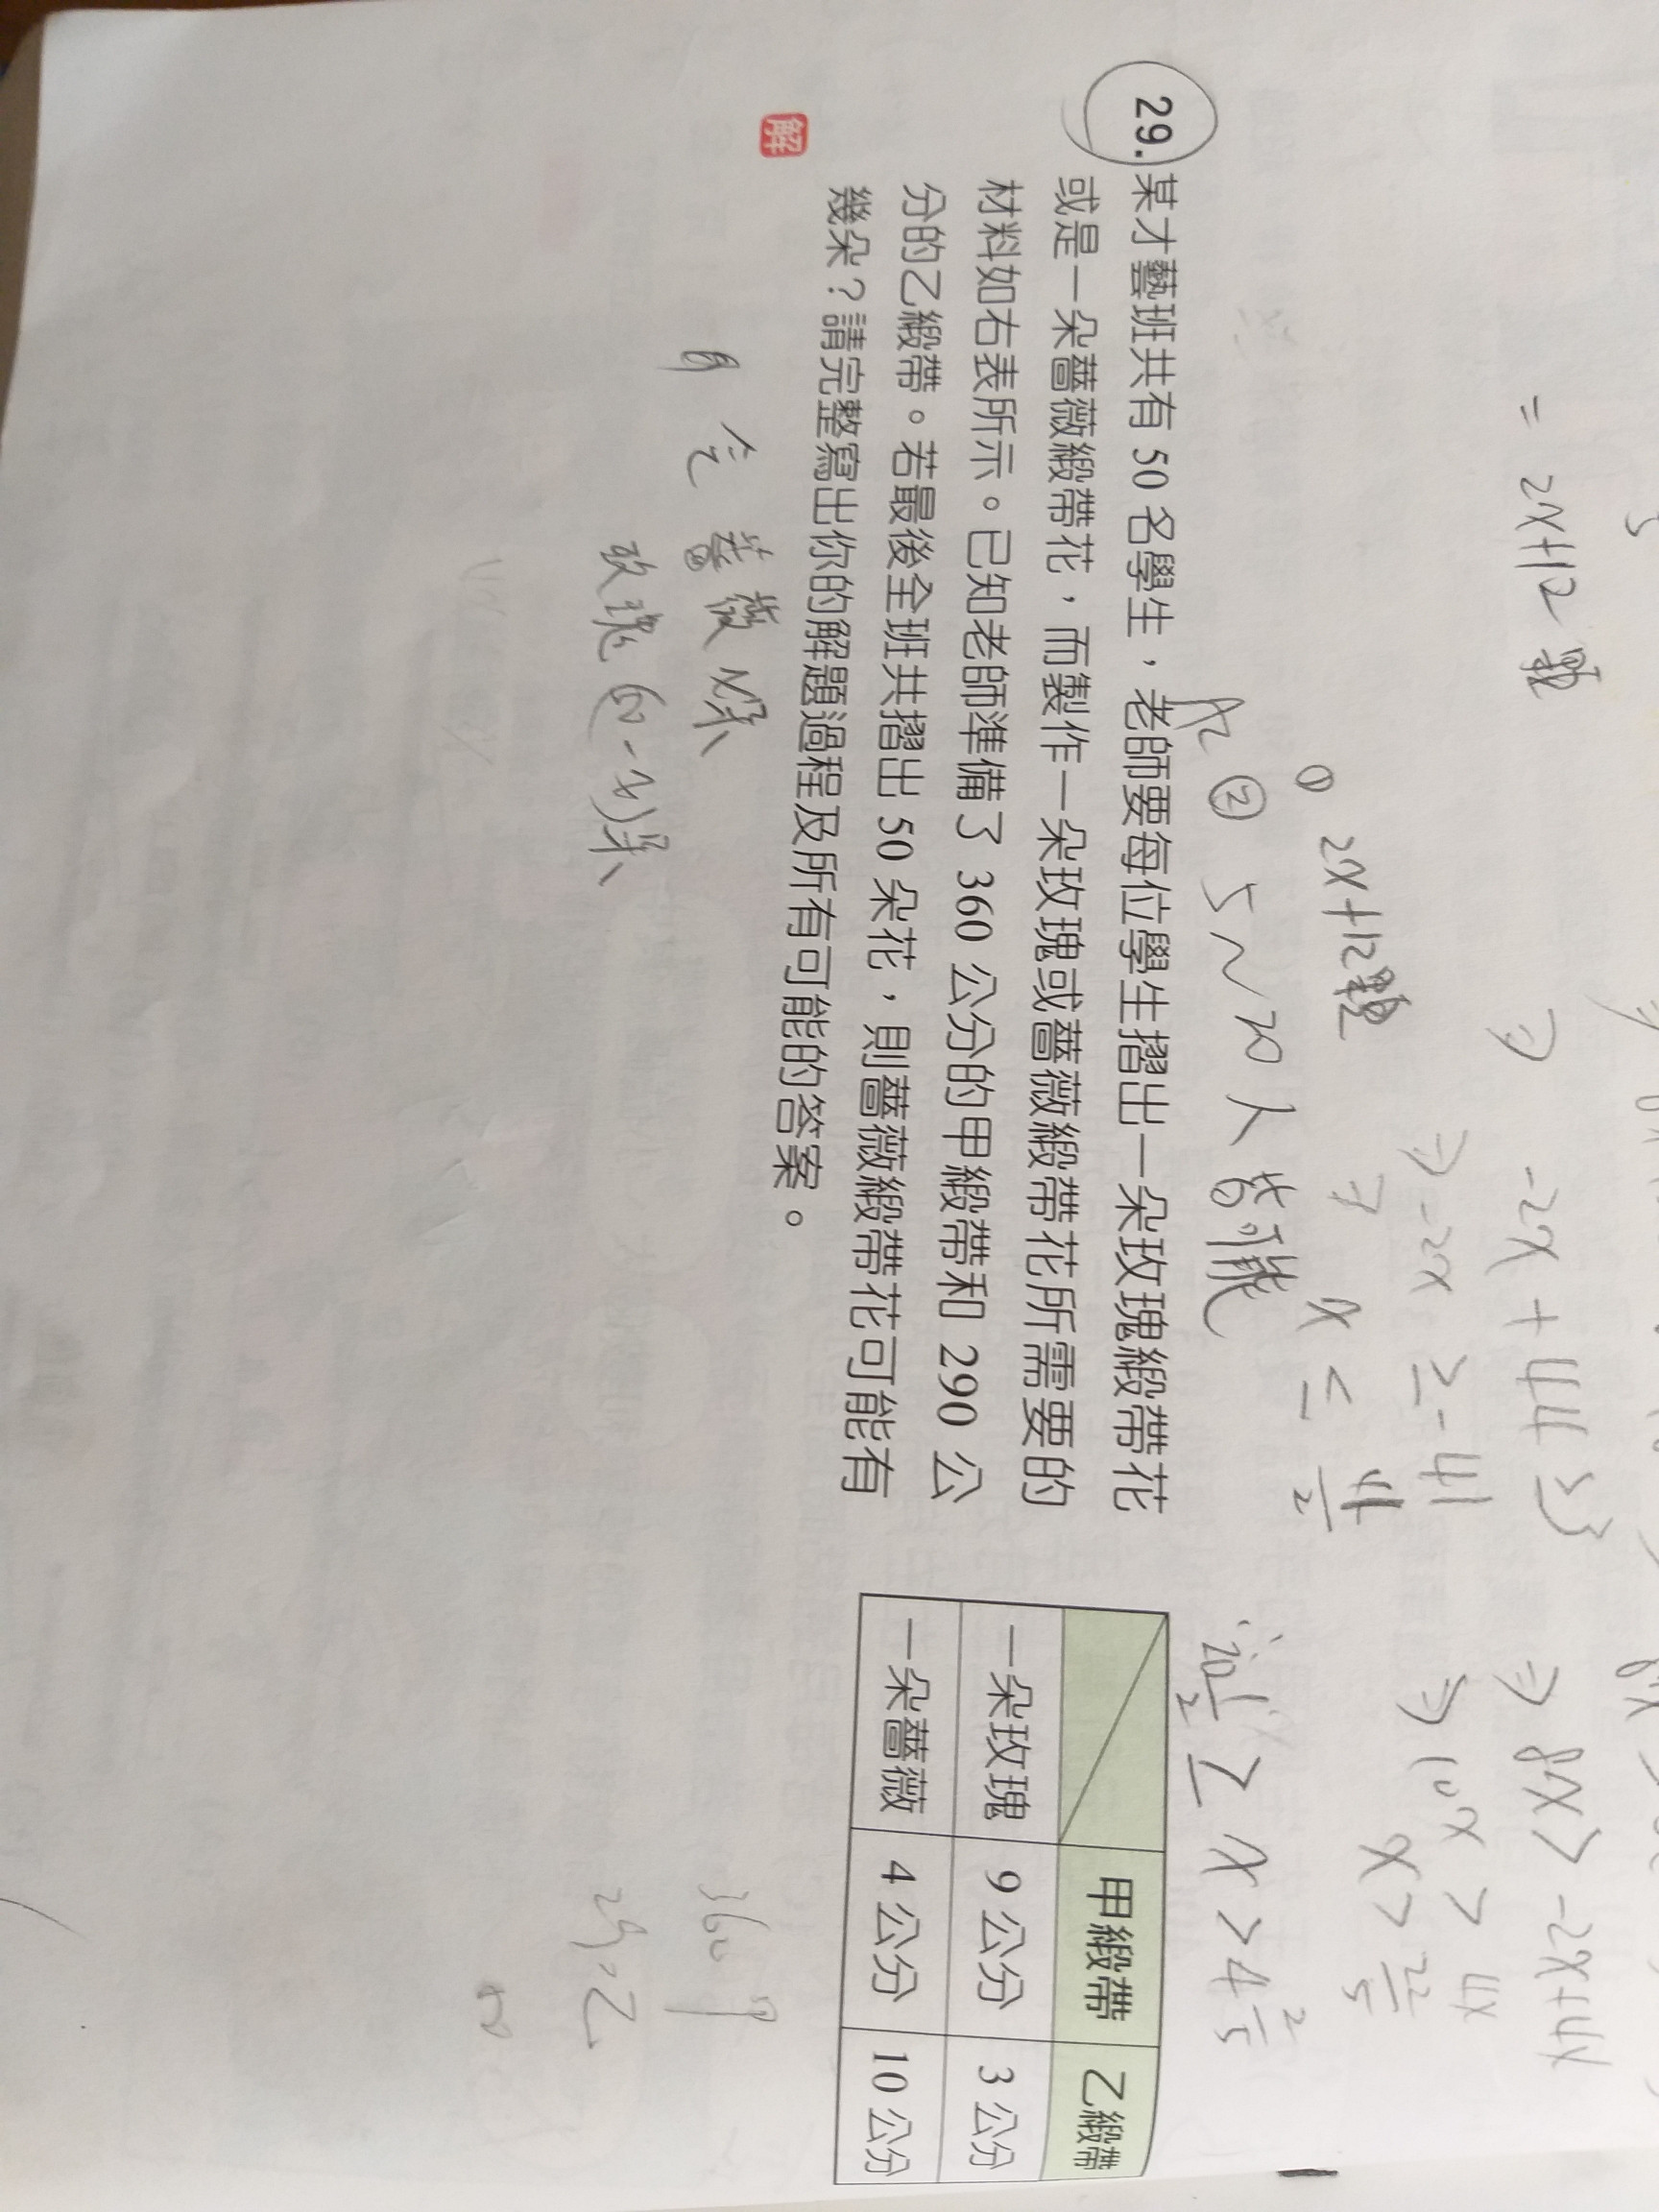 = 2x+12
① 2x+12題
⇒ -2x+44≤3
⇒ -2x≤-41
⇒ x≥41/2
⇒ 8x>-2x+44
⇒ 10x>44
x>22/5
A: ② 5~20人皆可能
29. 某才藝班共有 50 名學生，老師要每位學生摺出一朵玫瑰緞帶花
或是一朵薔薇緞帶花，而製作一朵玫瑰或薔薇緞帶花所需要的
材料如右表所示。已知老師準備了 360 公分的甲緞帶和 290 公
分的乙緞帶。若最後全班共摺出 50 朵花，則薔薇緞帶花可能有
幾朵？請完整寫出你的解題過程及所有可能的答案。
甲緞帶 乙緞帶
一朵玫瑰 9 公分 3 公分
一朵薔薇 4 公分 10 公分
解
薔薇x朵
玫瑰(50-x)朵
360 甲
290乙